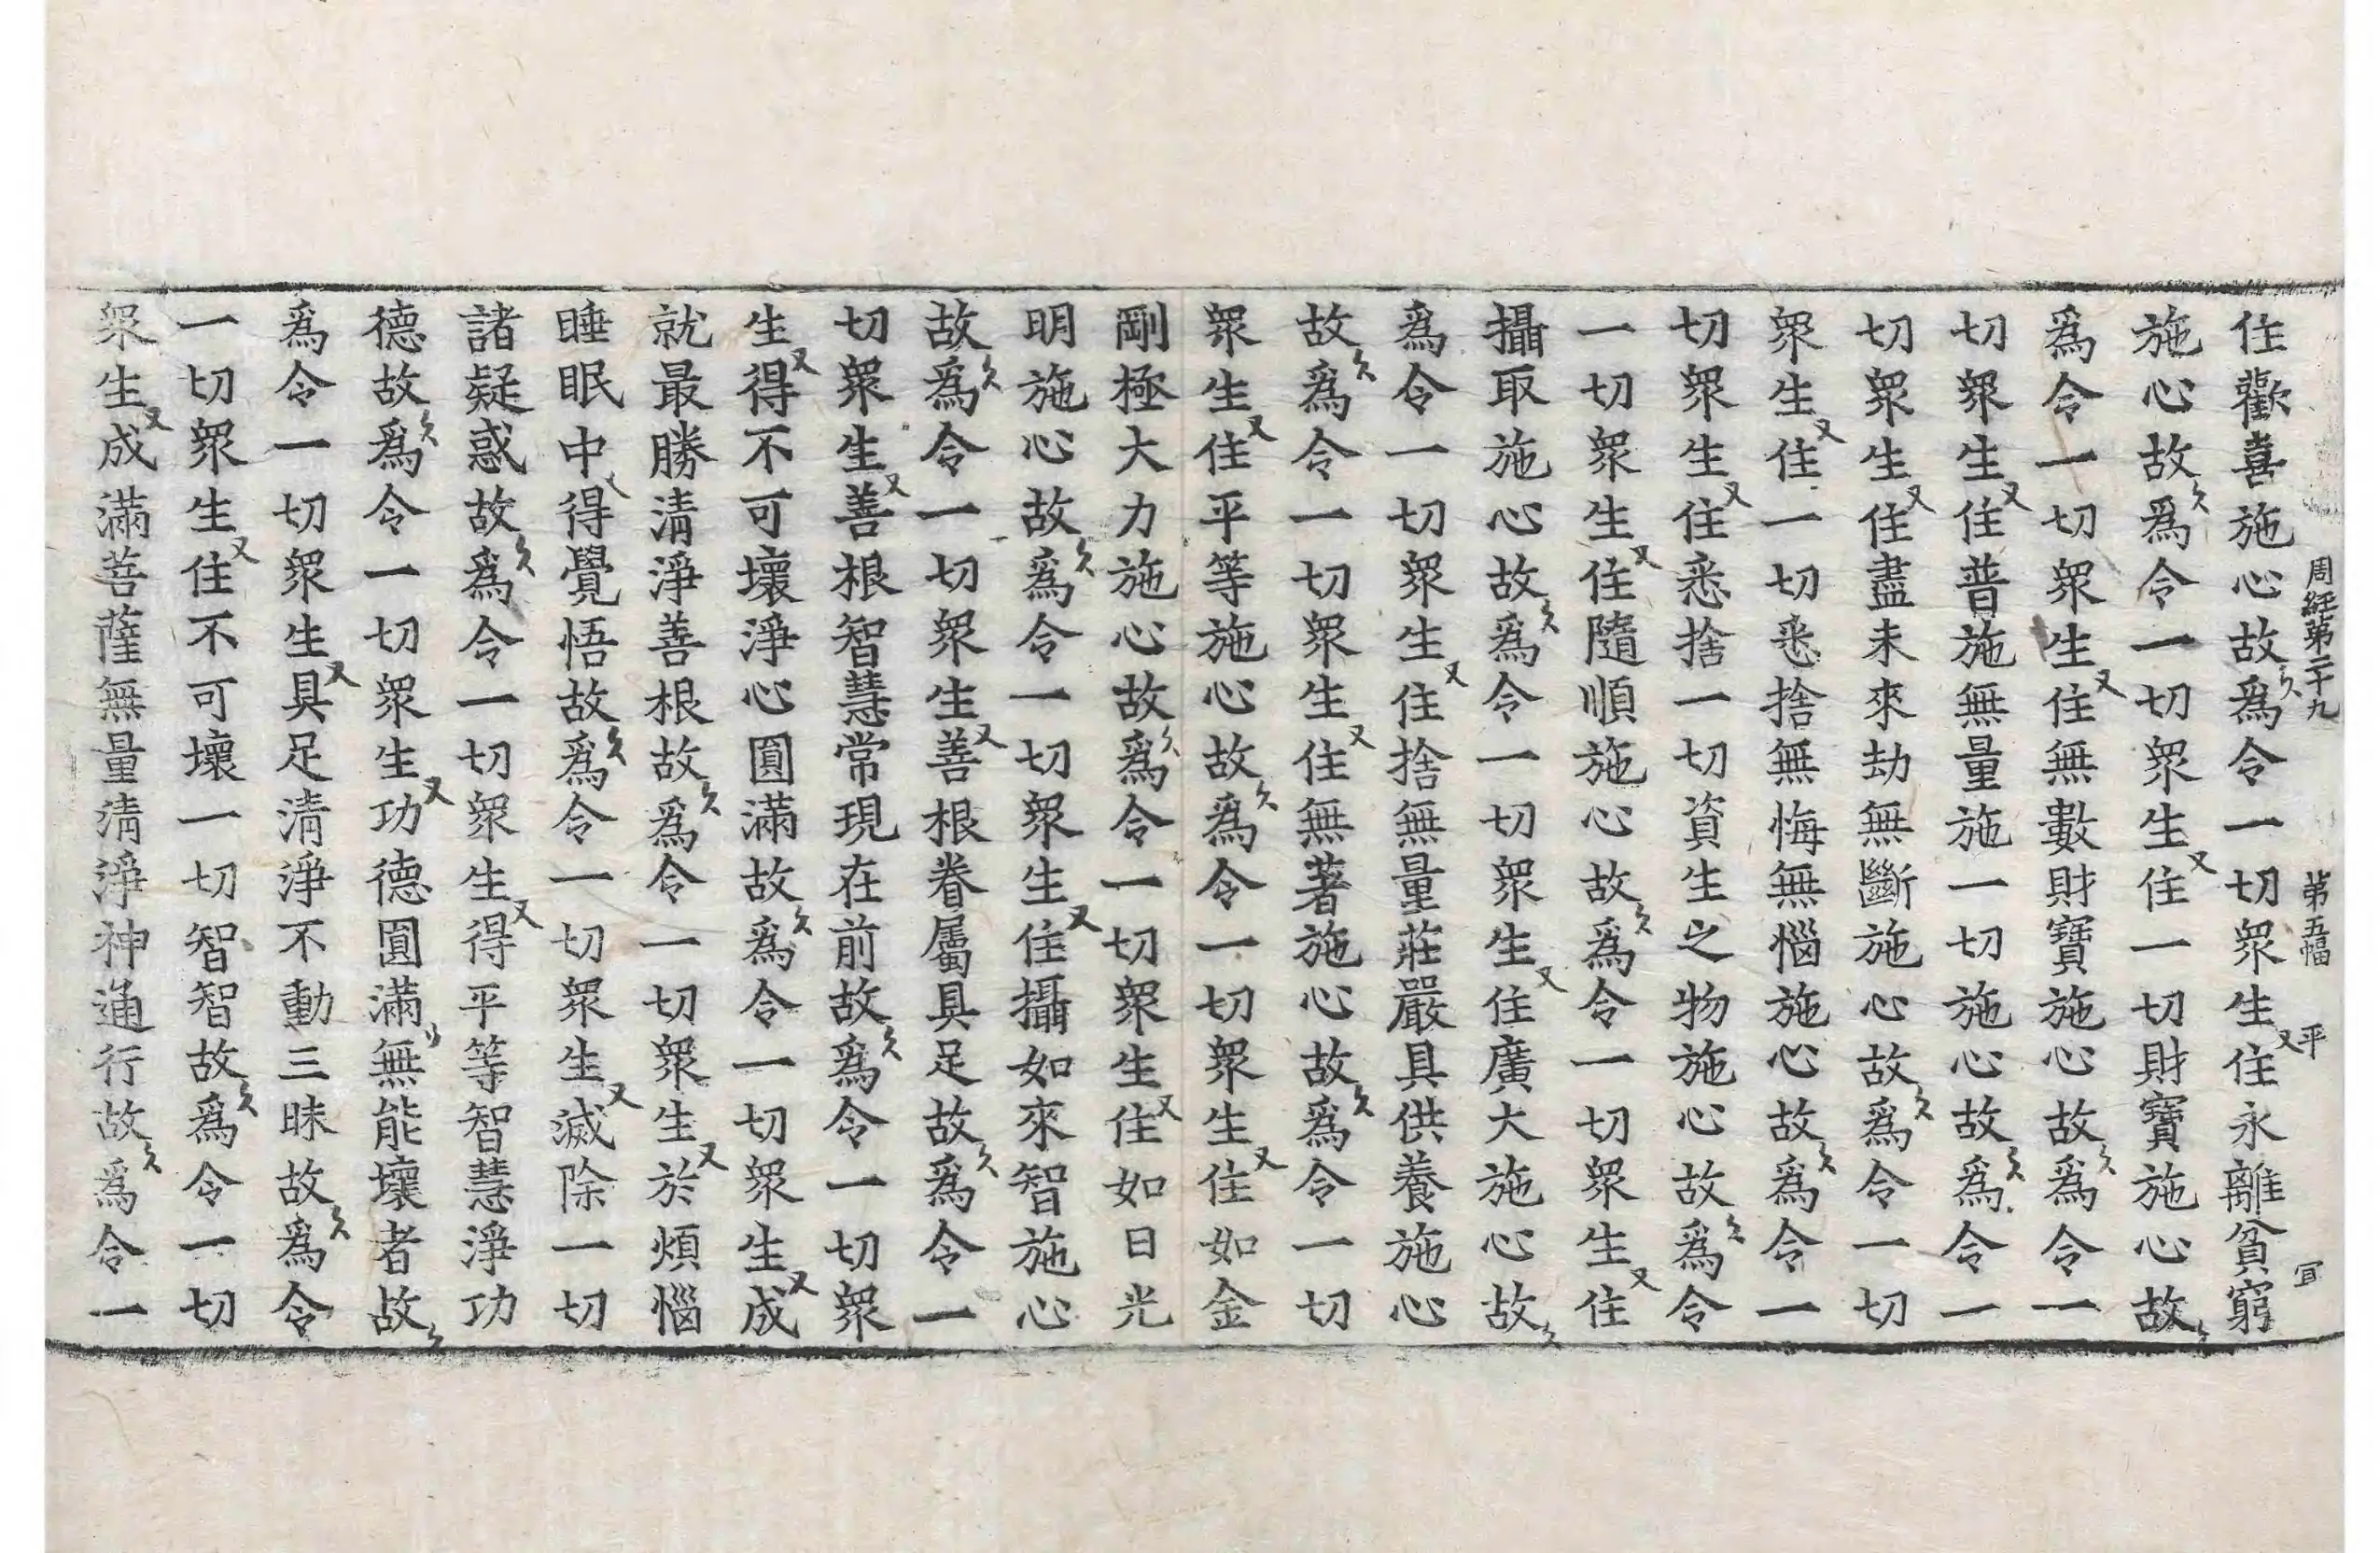 周經第二十九 第五幅 平
住歡喜施心故爲令一切眾生住永離貧窮
施心故爲令一切眾生住一切財寶施心故
爲令一切眾生住無數財寶施心故爲令一
切眾生住普施無量施一切施心故爲令一
切眾生住盡未來劫無斷施心故爲令一切
眾生住一切悉捨無悔無惱施心故爲令一
切眾生住悉捨一切資生之物施心故爲令
一切眾生住隨順施心故爲令一切眾生住
攝取施心故爲令一切眾生住廣大施心故
爲令一切眾生住捨無量莊嚴具供養施心
故爲令一切眾生住無著施心故爲令一切
眾生住平等施心故爲令一切眾生住如金
剛極大力施心故爲令一切眾生住如日光
明施心故爲令一切眾生住攝如來智施心
故爲令一切眾生善根眷屬具足故爲令一
切眾生善根智慧常現在前故爲令一切眾
生得不可壞淨心圓滿故爲令一切眾生成
就最勝清淨善根故爲令一切眾生於煩惱
睡眠中得覺悟故爲令一切眾生滅除一切
諸疑惑故爲令一切眾生得平等智慧淨功
德故爲令一切眾生功德圓滿無能壞者故
爲令一切眾生具足清淨不動三昧故爲令
一切眾生住不可壞一切智智故爲令一切
眾生成滿菩薩無量清淨神通行故爲令一